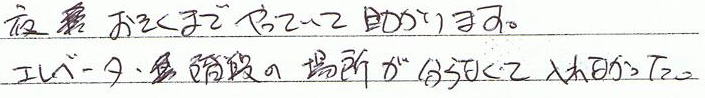 夜おそくまでやっていて助かります。
エレベータ・階段の場所が分らなくて入れなかった。